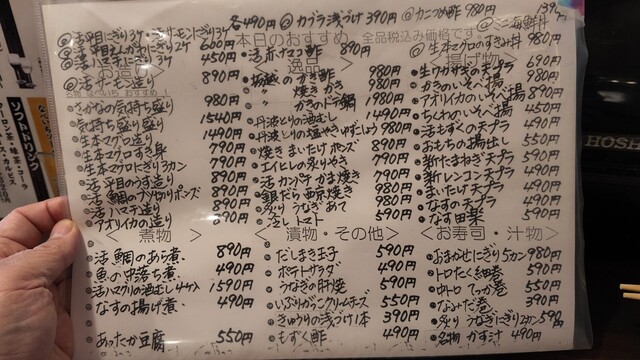 各490円 カブラ浅づけ390円 カニつめ酢980円
活平目にぎり3ケ・活サーモンにぎり3ケ
活平目えんがわにぎり2ケ 600円
450円
本日のおすすめ 全品税込み価格です
海鮮丼
生本マグロのすきみ丼 980円
お造り
活〆イカ造り 890円
さかなの気持ち盛り 980円
気持ち盛り盛り 1540円
生本マグロ造り 1490円
生本マグロすき身 790円
生本マグロとにぎり3カン 790円
活平目のうす造り 890円
活鯛のブツ切りポンズ 890円
活ハマチ造り 890円
アオリイカの造り 890円
逸品
活赤ナマコ酢 890円
かき酢 980円
〃 焼きかき 980円
〃 かきの土手鍋 1980円
丹波とりの酒むし 1490円
丹波とりの塩やき ゆずこしょう 980円
焼きまいたけポンズ 890円
エイヒレの炙りやき 490円
活カンパチかま焼き 790円
銀だら西京焼き 980円
炙りうなぎあて 980円
冷しトマト 590円
揚げ物
生ワカサギの天プラ 690円
かきのいそべ揚 980円
アオリイカのいそべ揚 890円
ちくわのいそべ揚 450円
活もずくの天プラ 490円
おもちの揚出し 550円
新たまねぎ天プラ 590円
新レンコン天プラ 490円
まいたけ天プラ 490円
なすの天プラ 490円
なす田楽 590円
煮物
活鯛のあら煮 890円
魚の中落ち煮 490円
活ハマグリの酒むし 1590円
なすの揚げ煮 490円
あったか豆腐 550円
漬物・その他
だしまき玉子 590円
ポテトサラダ 490円
うなぎの肝焼 590円
いぶりがっこクリームチーズ 550円
きゅうりの浅づけ1本 390円
もずく酢 490円
お寿司・汁物
おまかせにぎり5カン 980円
トロたく細巻 590円
中トロてっか巻 550円
なみだ巻 390円
炙りうなぎにぎり2カン 590円
名物かす汁 490円
ソフトドリンク
HOSH